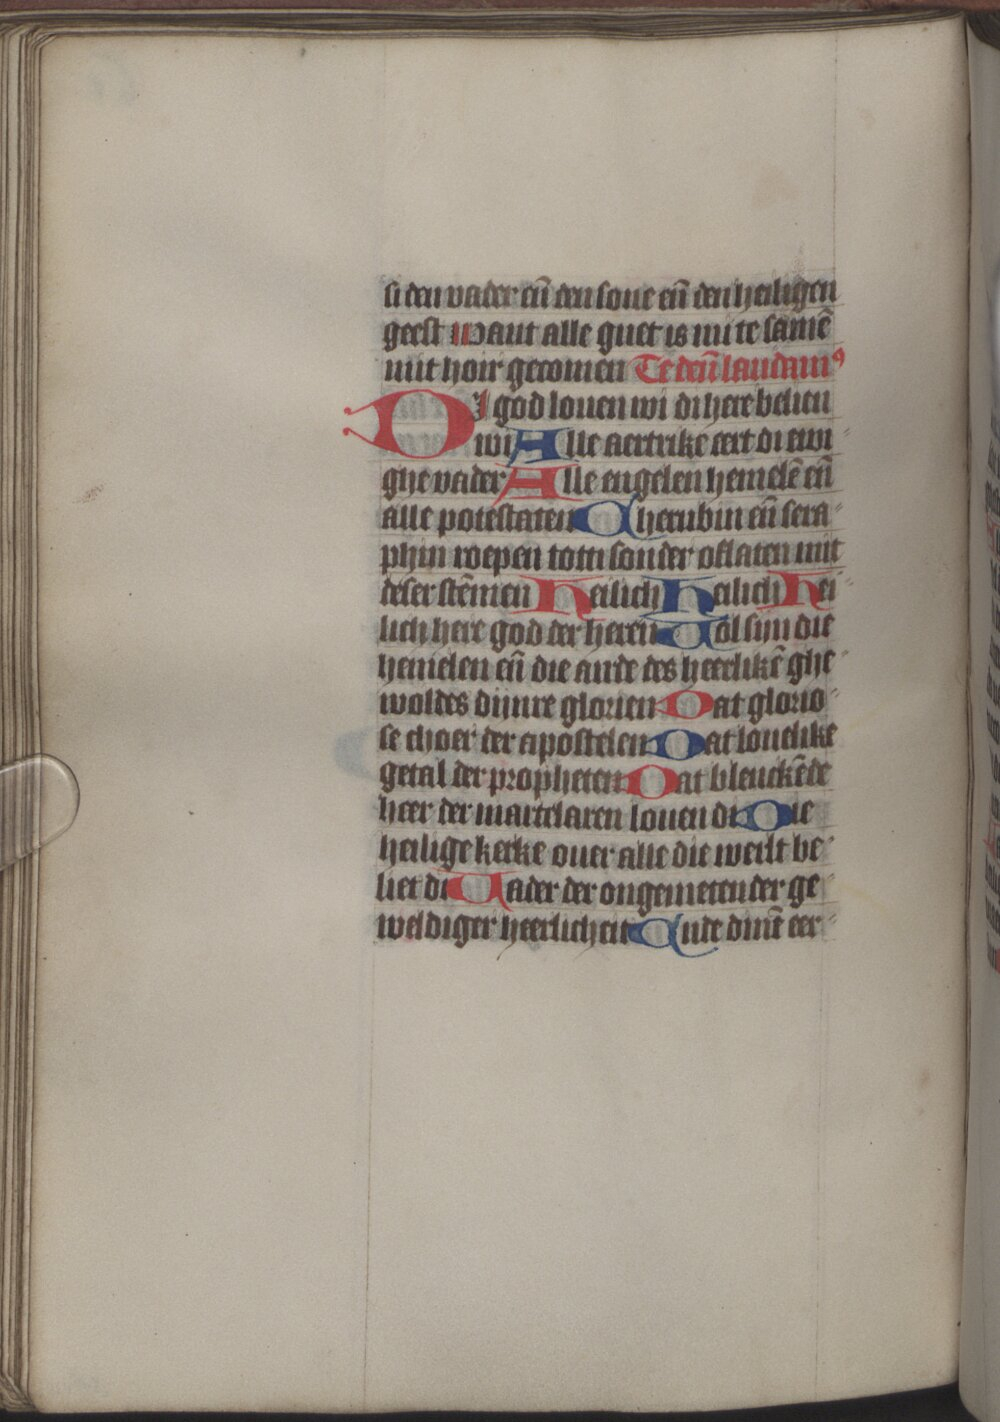 si den vader en̄ den sone en̄ den heiligen
geest want alle guet is mi te samē
mit hoir gecomen Te deū laudamꝰ
DI god louen wi di here belien
wi Alle aertrike eert di ewi
ghe vader Alle engelen hemelē en̄
alle potestaten Cherubin en̄ sera
phin roepen totti sonder oflaten mit
deser stēmen Heilich Heilich Hei
lich here god der heren Vol sijn die
hemelen en̄ die aerde des heerlikē ghe
woldes dijnre glorien Dat glorio
se choer der apostelen Dat louelike
getal der propheten Dat blenckēde
heer der martelaren louen di Die
heilige kerke ouer alle die werlt be
liet di Vader der ongemeten der ge
weldiger heerlicheit Ende dinē eer